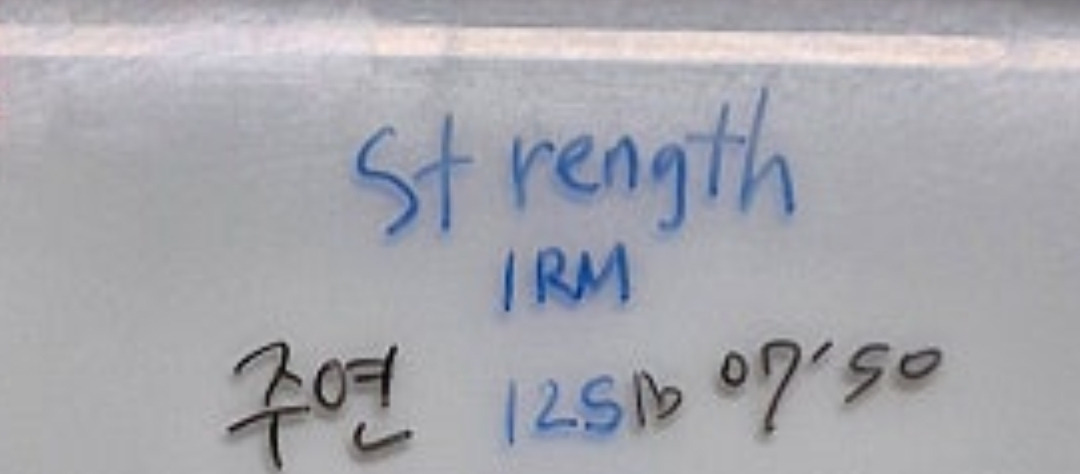 Strength
1RM
주연 125lb 07'50